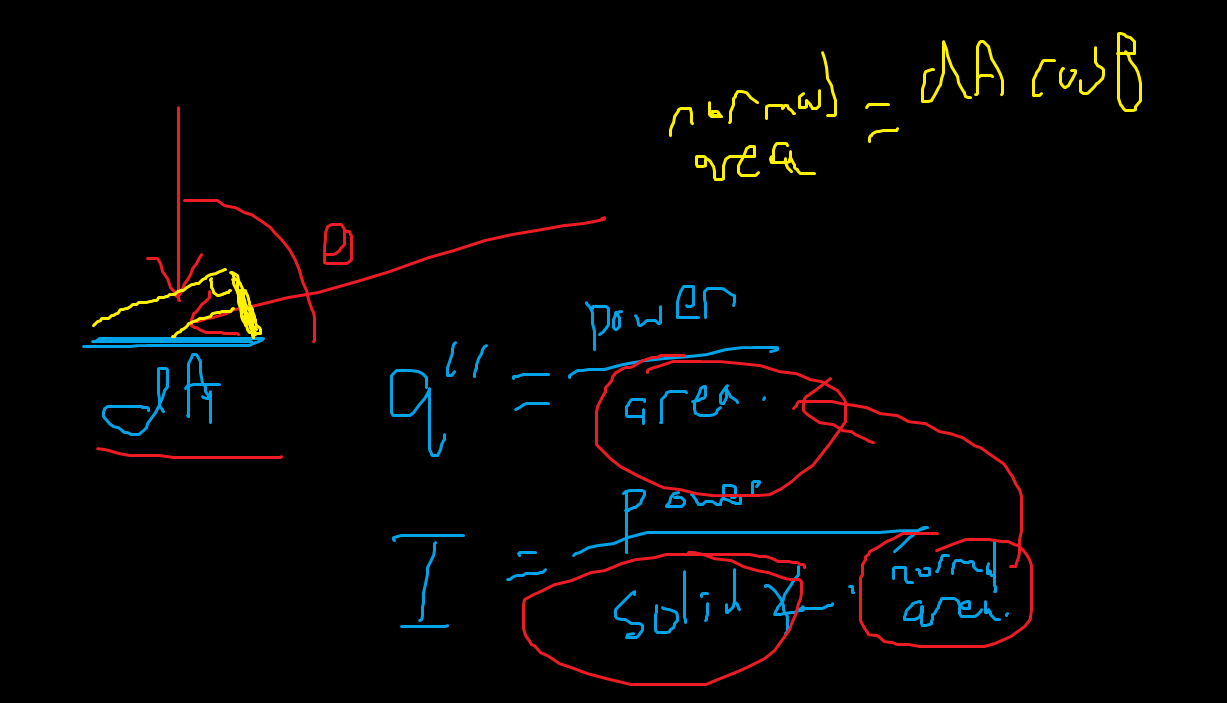 normal area = dA cosθ
θ
dA
q'' = power
area.
I = power
solid ∠ . normal
area.